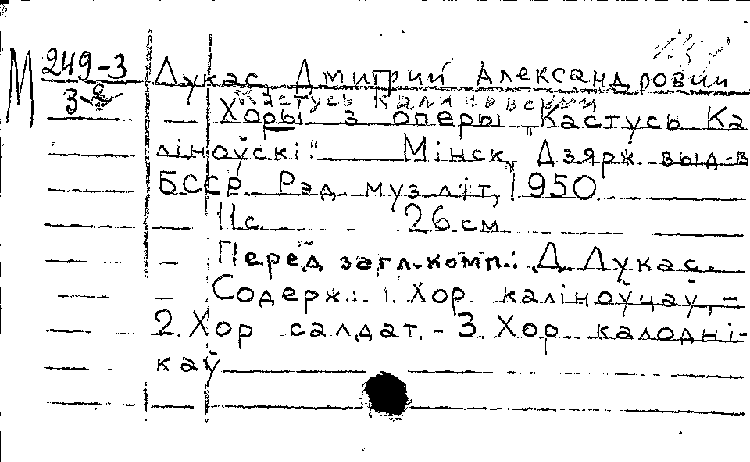 М 249-3 Лукас, Дмитрий Александрович
3-2
Кастусь Калиновский
Хоры з оперы „Кастусь Ка
ліноўскі." Мінск, Дзярж. выд-в
БССР. Рэд. муз. літ, 1950
11 с. 26 см
Перед загл. комп.: Д. Лукас.
Содерж.: 1. Хор каліноўцаў, -
2. Хор салдат. - 3. Хор калодні-
каў